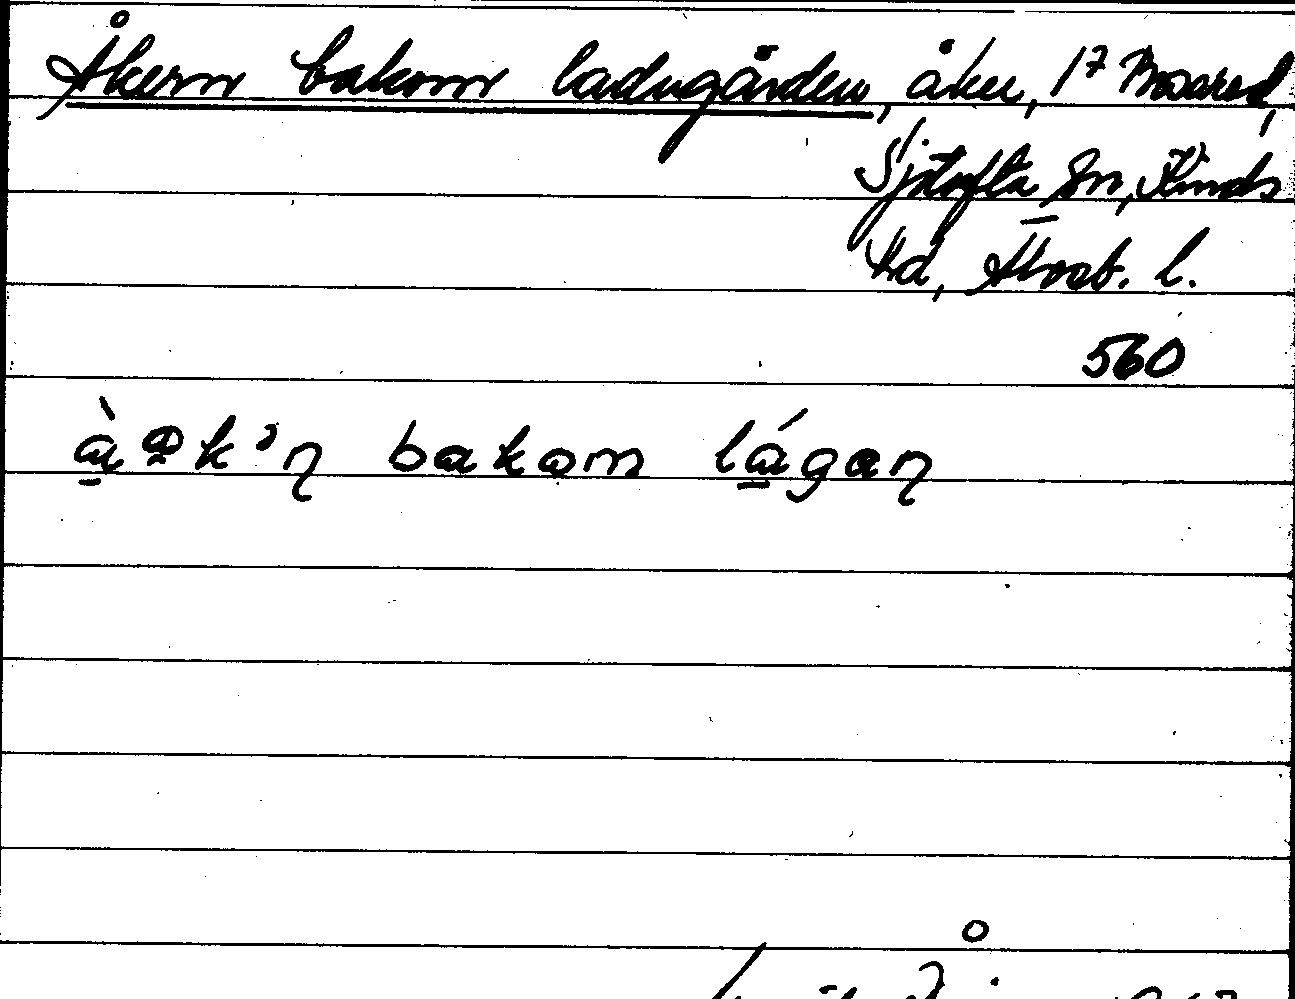 Åkern bakom ladugården, åker, 17 Bosared,
Sjötofta sn, Kinds
hd, Älvsb. l.
560
bakom lágan